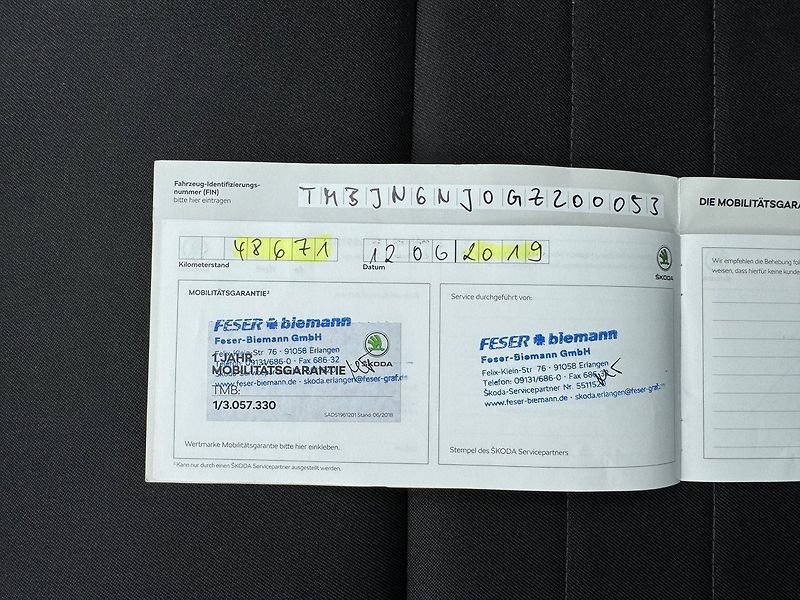 Fahrzeug-Identifizierungs-
nummer (FIN)
bitte hier eintragen
TMBJN6NJ0GZ200053
48671
Kilometerstand
12 06 2019
Datum
ŠKODA
MOBILITÄTSGARANTIE²
FESER biemann
Feser-Biemann GmbH
Felix-Klein-Str 76 · 91058 Erlangen
1 JAHR
09131/686-0 · Fax 686-32
MOBILITÄTSGARANTIE
ŠKODA
www.feser-biemann.de · skoda.erlangen@feser-graf.de
TMB:
1/3.057.330
SAD51961201 Stand: 06/2018
Wertmarke Mobilitätsgarantie bitte hier einkleben.
² Kann nur durch einen ŠKODA Servicepartner ausgestellt werden.
Service durchgeführt von:
FESER biemann
Feser-Biemann GmbH
Felix-Klein-Str 76 - 91058 Erlangen
Telefon: 09131/686-0 · Fax 686-32
Škoda-Servicepartner Nr. 55115
www.feser-biemann.de · skoda.erlangen@feser-graf.de
Stempel des ŠKODA Servicepartners
DIE MOBILITÄTSGARA
Wir empfehlen die Behebung fol
weisen, dass hierfür keine kunde